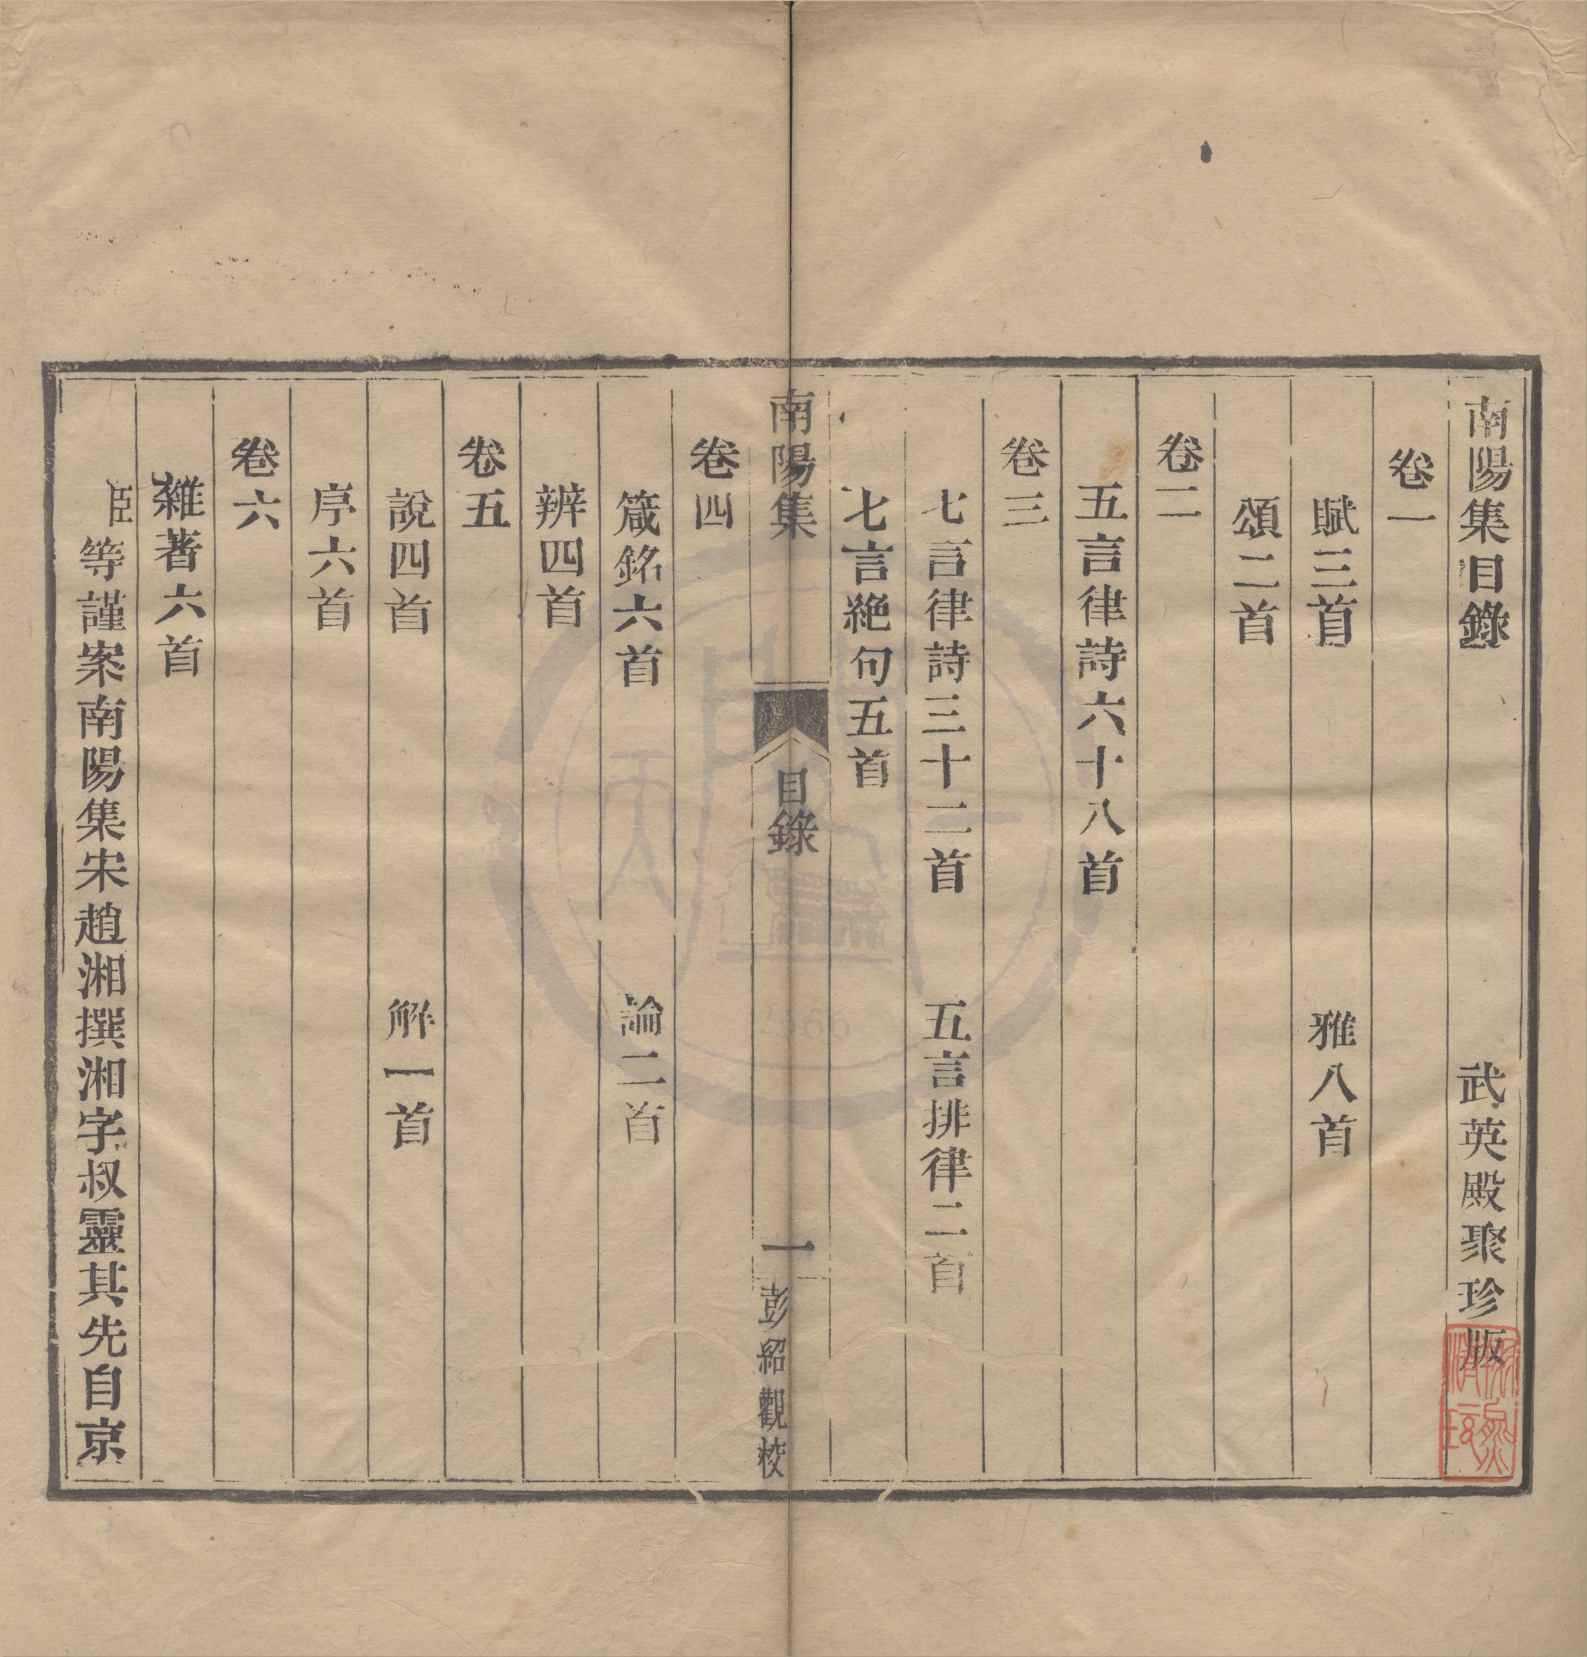 南陽集目錄　武英殿聚珍版
卷一
賦三首　雅八首
頌二首
卷二
五言律詩六十八首
卷三
七言律詩三十二首　五言排律二首
七言絕句五首
南陽集　目錄　一　彭紹觀校
卷四
箴銘六首　論二首
辨四首
卷五
說四首　解一首
序六首
卷六
雜著六首
臣等謹案南陽集宋趙湘撰湘字叔靈其先自京